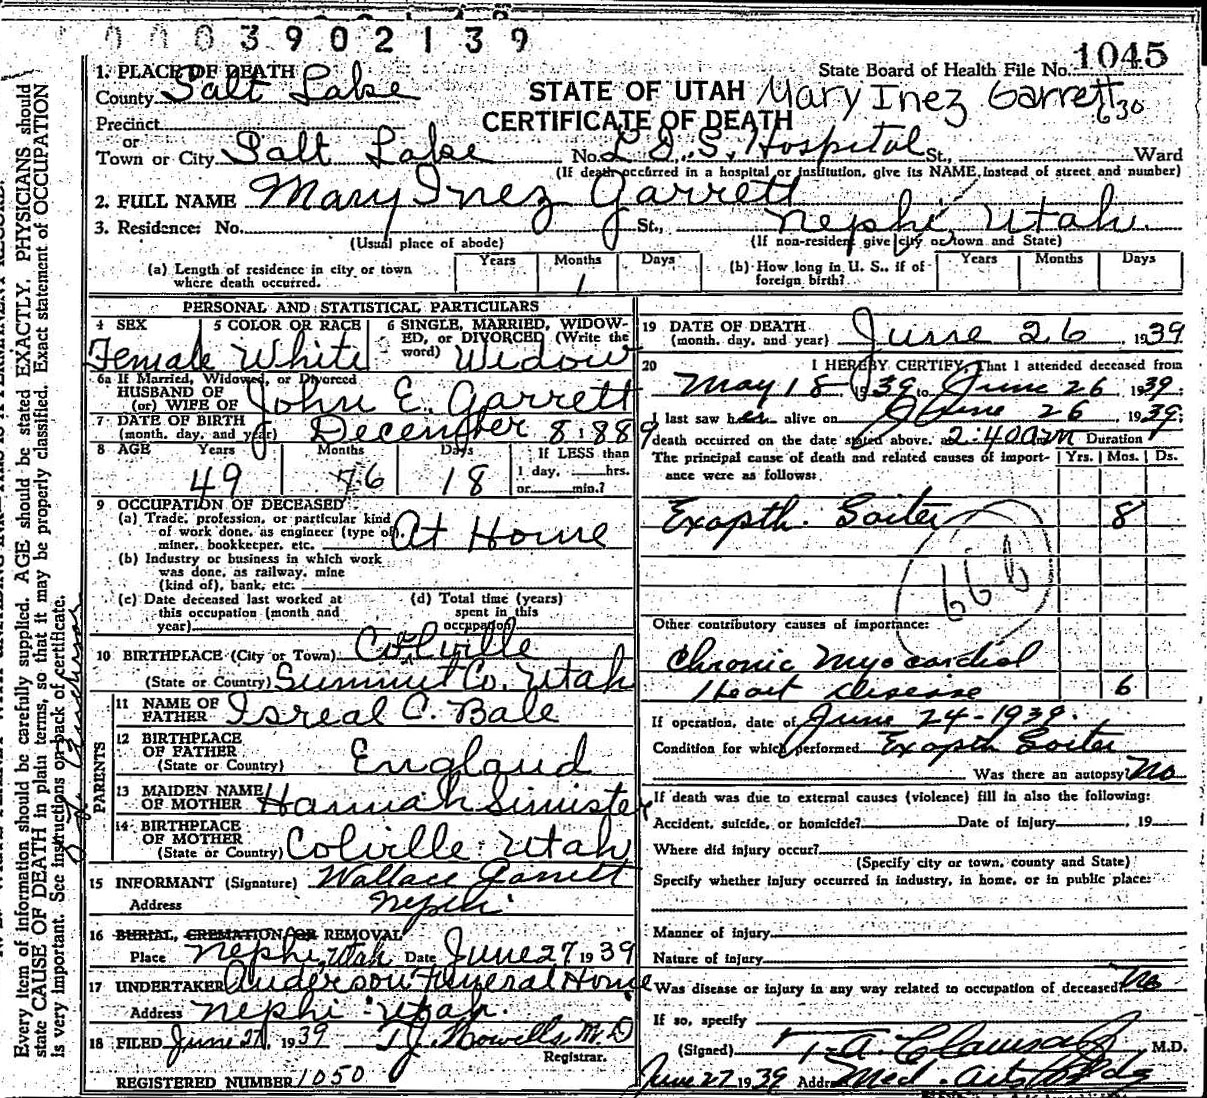 0003902139
1045
State Board of Health File No.
1. PLACE OF DEATH
County Salt Lake
STATE OF UTAH Mary Inez Garrett
630
Precinct
CERTIFICATE OF DEATH
or
Town or City Salt Lake No. L.D.S. Hospital St., Ward
(If death occurred in a hospital or institution, give its NAME instead of street and number)
2. FULL NAME Mary Inez Garrett
3. Residence: No. St., Nephi, Utah.
(Usual place of abode) (If non-resident give city or town and State)
(a) Length of residence in city or town where death occurred. Years Months 1 Days
(b) How long in U. S., if of foreign birth? Years Months Days
PERSONAL AND STATISTICAL PARTICULARS
4 SEX 5 COLOR OR RACE 6 SINGLE, MARRIED, WIDOW-
ED, OR DIVORCED (Write the
word)
Female White Widow
6a If Married, Widowed, or Divorced
HUSBAND OF
(or) WIFE OF John E. Garrett
7 DATE OF BIRTH
(month, day, and year) December 8 1889
8 AGE Years Months Days If LESS than
1 day, hrs.
or min.?
49 6 18
9 OCCUPATION OF DECEASED
(a) Trade, profession, or particular kind
of work done, as engineer (type of),
miner, bookkeeper, etc. At Home
(b) Industry or business in which work
was done, as railway, mine
(kind of), bank, etc.
(c) Date deceased last worked at
this occupation (month and
year)
(d) Total time (years)
spent in this
occupation
10 BIRTHPLACE (City or Town) Colville
(State or Country) Summit Co. Utah
PARENTS
11 NAME OF
FATHER Isreal C. Bale
12 BIRTHPLACE
OF FATHER
(State or Country) England
13 MAIDEN NAME
OF MOTHER Hannah Simister
14 BIRTHPLACE
OF MOTHER
(State or Country) Colville Utah
15 INFORMANT (Signature) Wallace Garrett
Address Nephi
16 BURIAL, CREMATION OR REMOVAL
Place Nephi, Utah Date June 27 1939
17 UNDERTAKER Anderson Funeral Home
Address Nephi Utah.
18 FILED June 27, 1939 T.J. Howells, M.D
Registrar.
REGISTERED NUMBER 1050
19 DATE OF DEATH
(month, day, and year) June 26, 1939
20 I HEREBY CERTIFY, That I attended deceased from
May 18 1939 to June 26 1939.
I last saw her alive on June 26 1939;
death occurred on the date stated above, at 2:40 am Duration
The principal cause of death and related causes of import-
ance were as follows: Yrs. Mos. Ds.
Exopth. Goiter 8
66b
Other contributory causes of importance:
Chronic Myocardial
Heart Disease 6
If operation, date of June 24-1939.
Condition for which performed Exopth Goiter
Was there an autopsy? No
If death was due to external causes (violence) fill in also the following:
Accident, suicide, or homicide? Date of injury , 19
Where did injury occur?
(Specify city or town, county and State)
Specify whether injury occurred in industry, in home, or in public place:
Manner of injury
Nature of injury
Was disease or injury in any way related to occupation of deceased? No
If so, specify
(Signed) T. A. Clawson Jr M.D.
June 27 1939 Addr Med. Arts Bldg
Every item of information should be carefully supplied. AGE should be stated EXACTLY. PHYSICIANS should
state CAUSE OF DEATH in plain terms, so that it may be properly classified. Exact statement of OCCUPATION
is very important. See instructions on back of certificate.